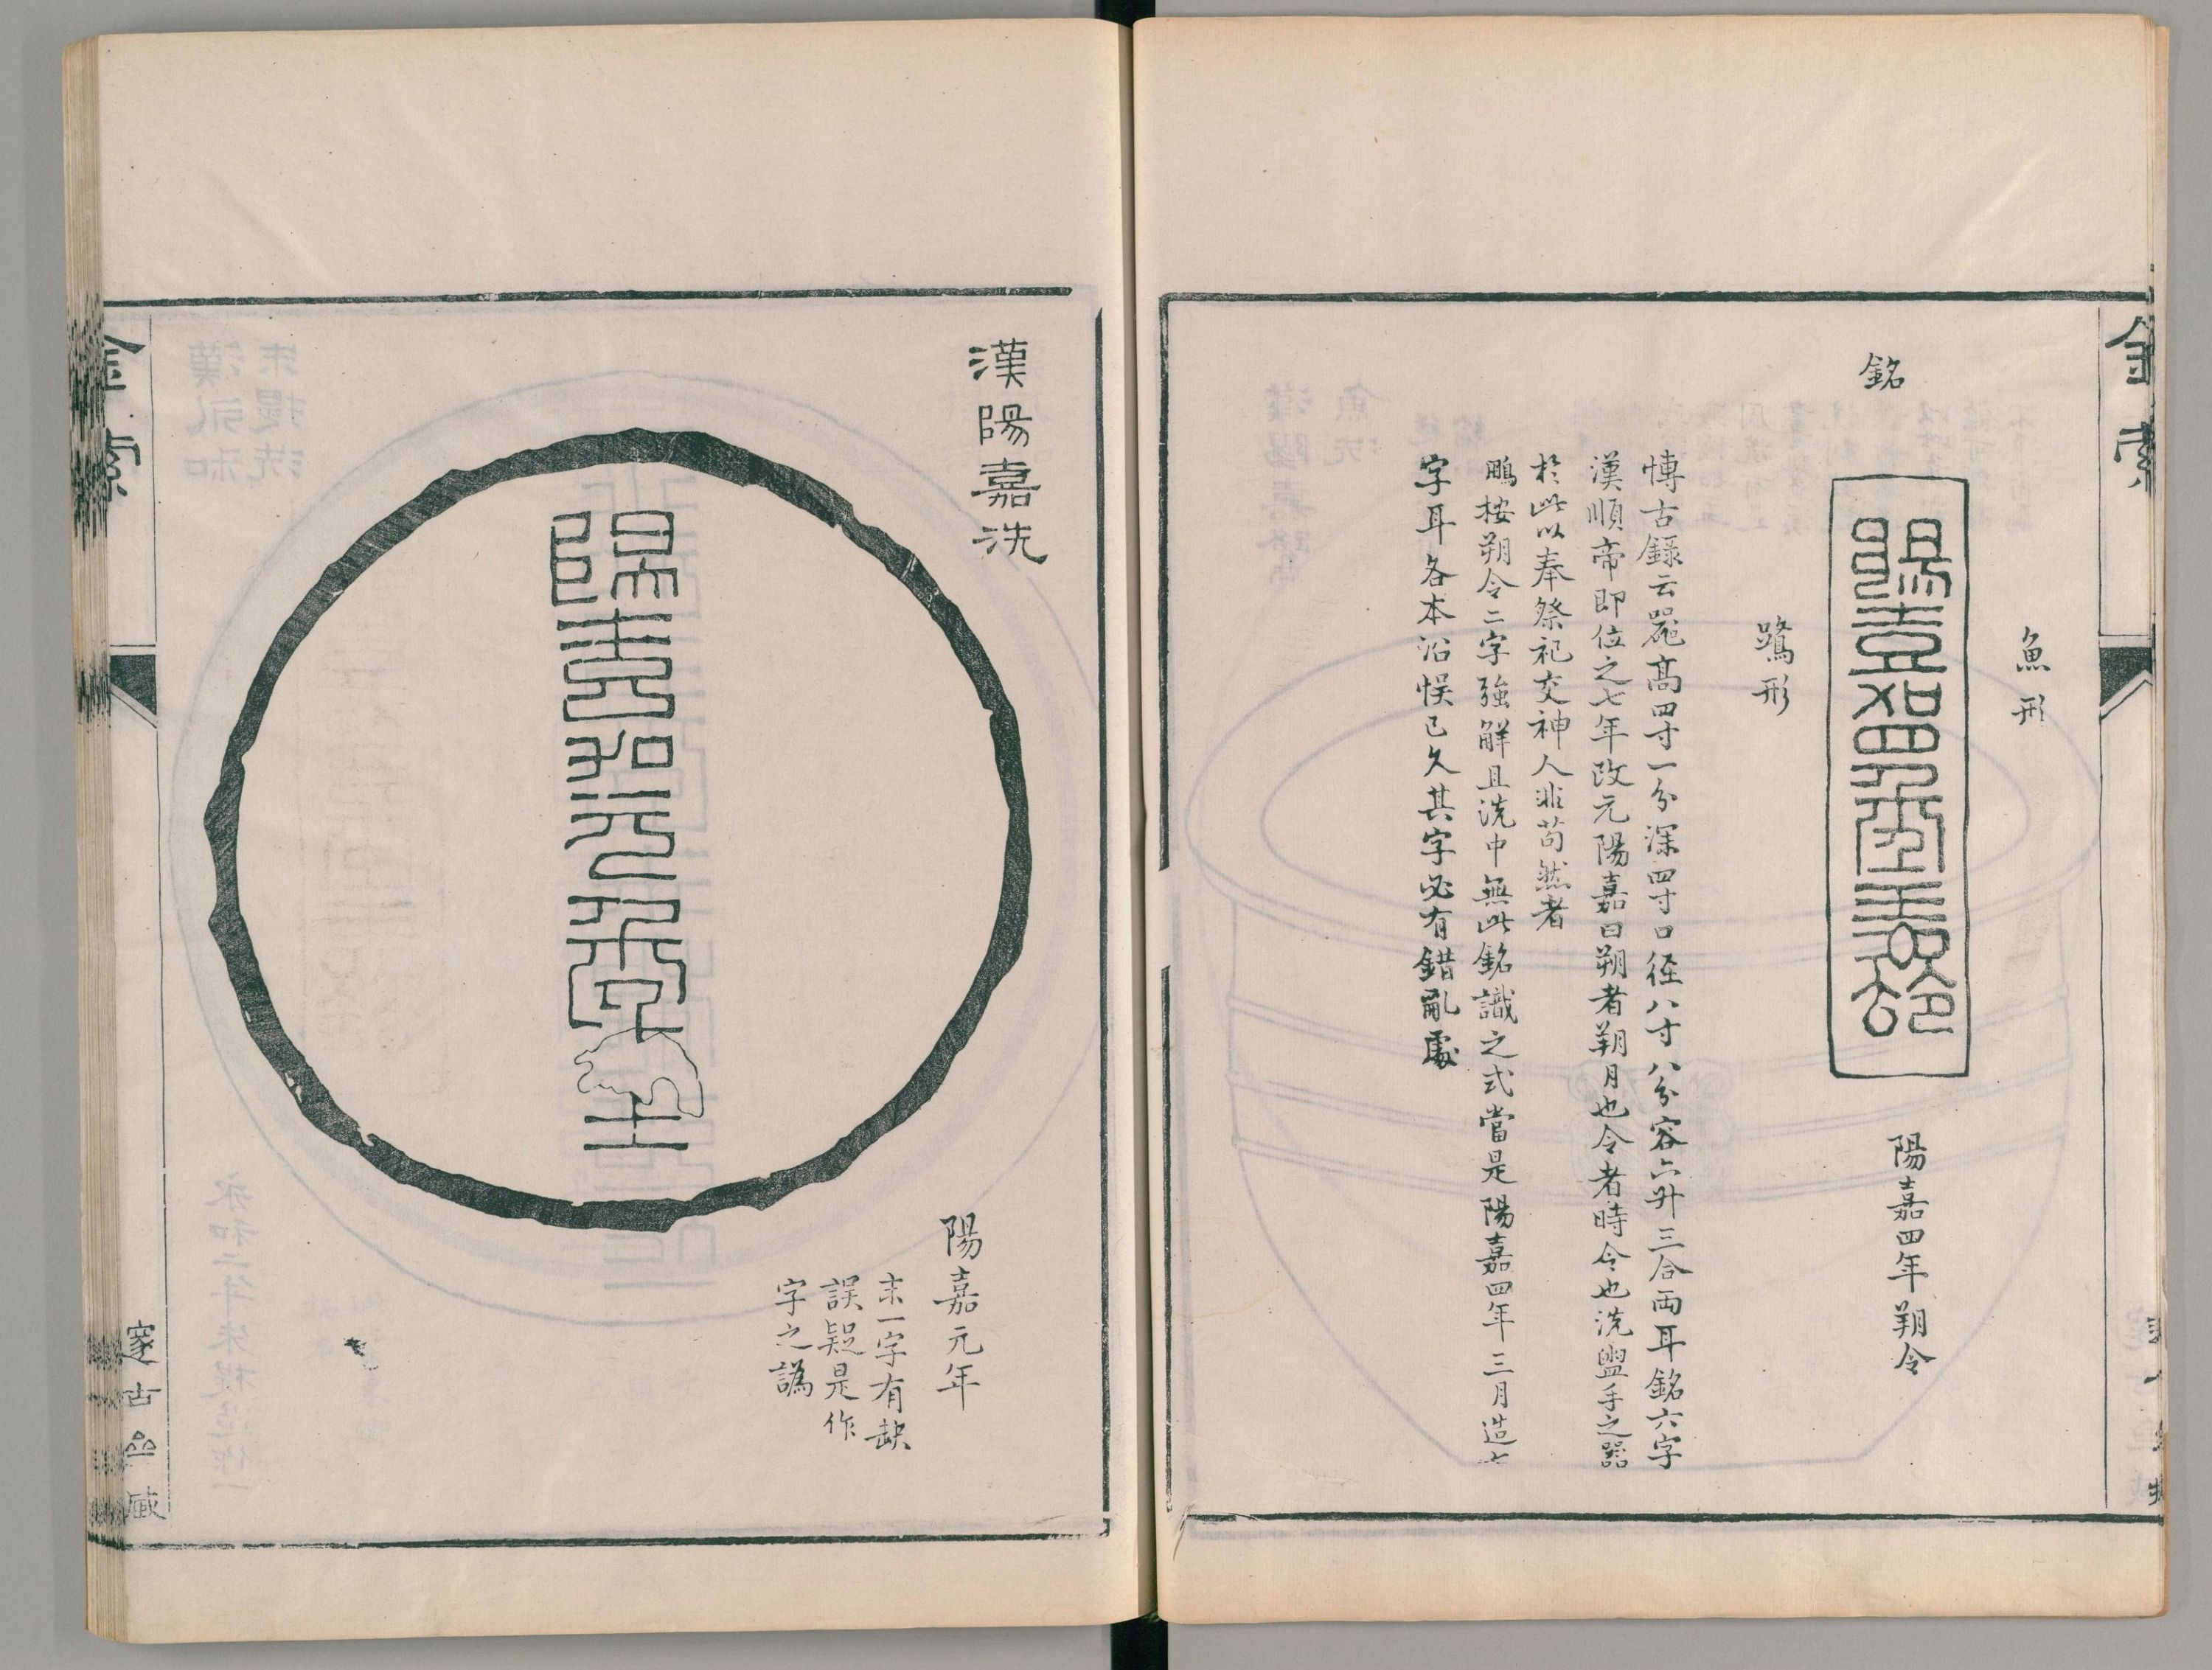 金索
銘
魚形
陽嘉四年朔令
鷺形
博古錄云器高四寸一分深四寸口徑八寸八分容六升三合兩耳銘六字
漢順帝即位之七年改元陽嘉曰朔者朔月也令者時令也洗盥手之器
於此以奉祭祀交神人非苟然者
鵬按朔令二字強解且洗中無此銘識之式當是陽嘉四年三月造七
字耳各本沿悞已久其字必有錯亂處
漢陽嘉洗
陽嘉元年
陽嘉元年
末一字有缺
誤疑是作
字之譌
金索
邃古齋藏